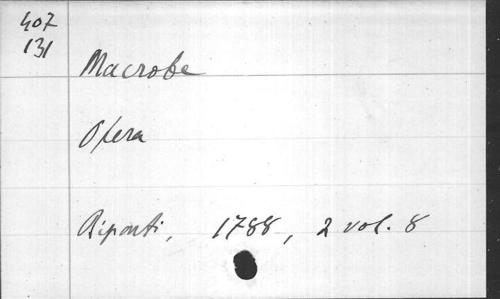 407
131
Macrobe
Opera
Biponti, 1788, 2 vol. 8